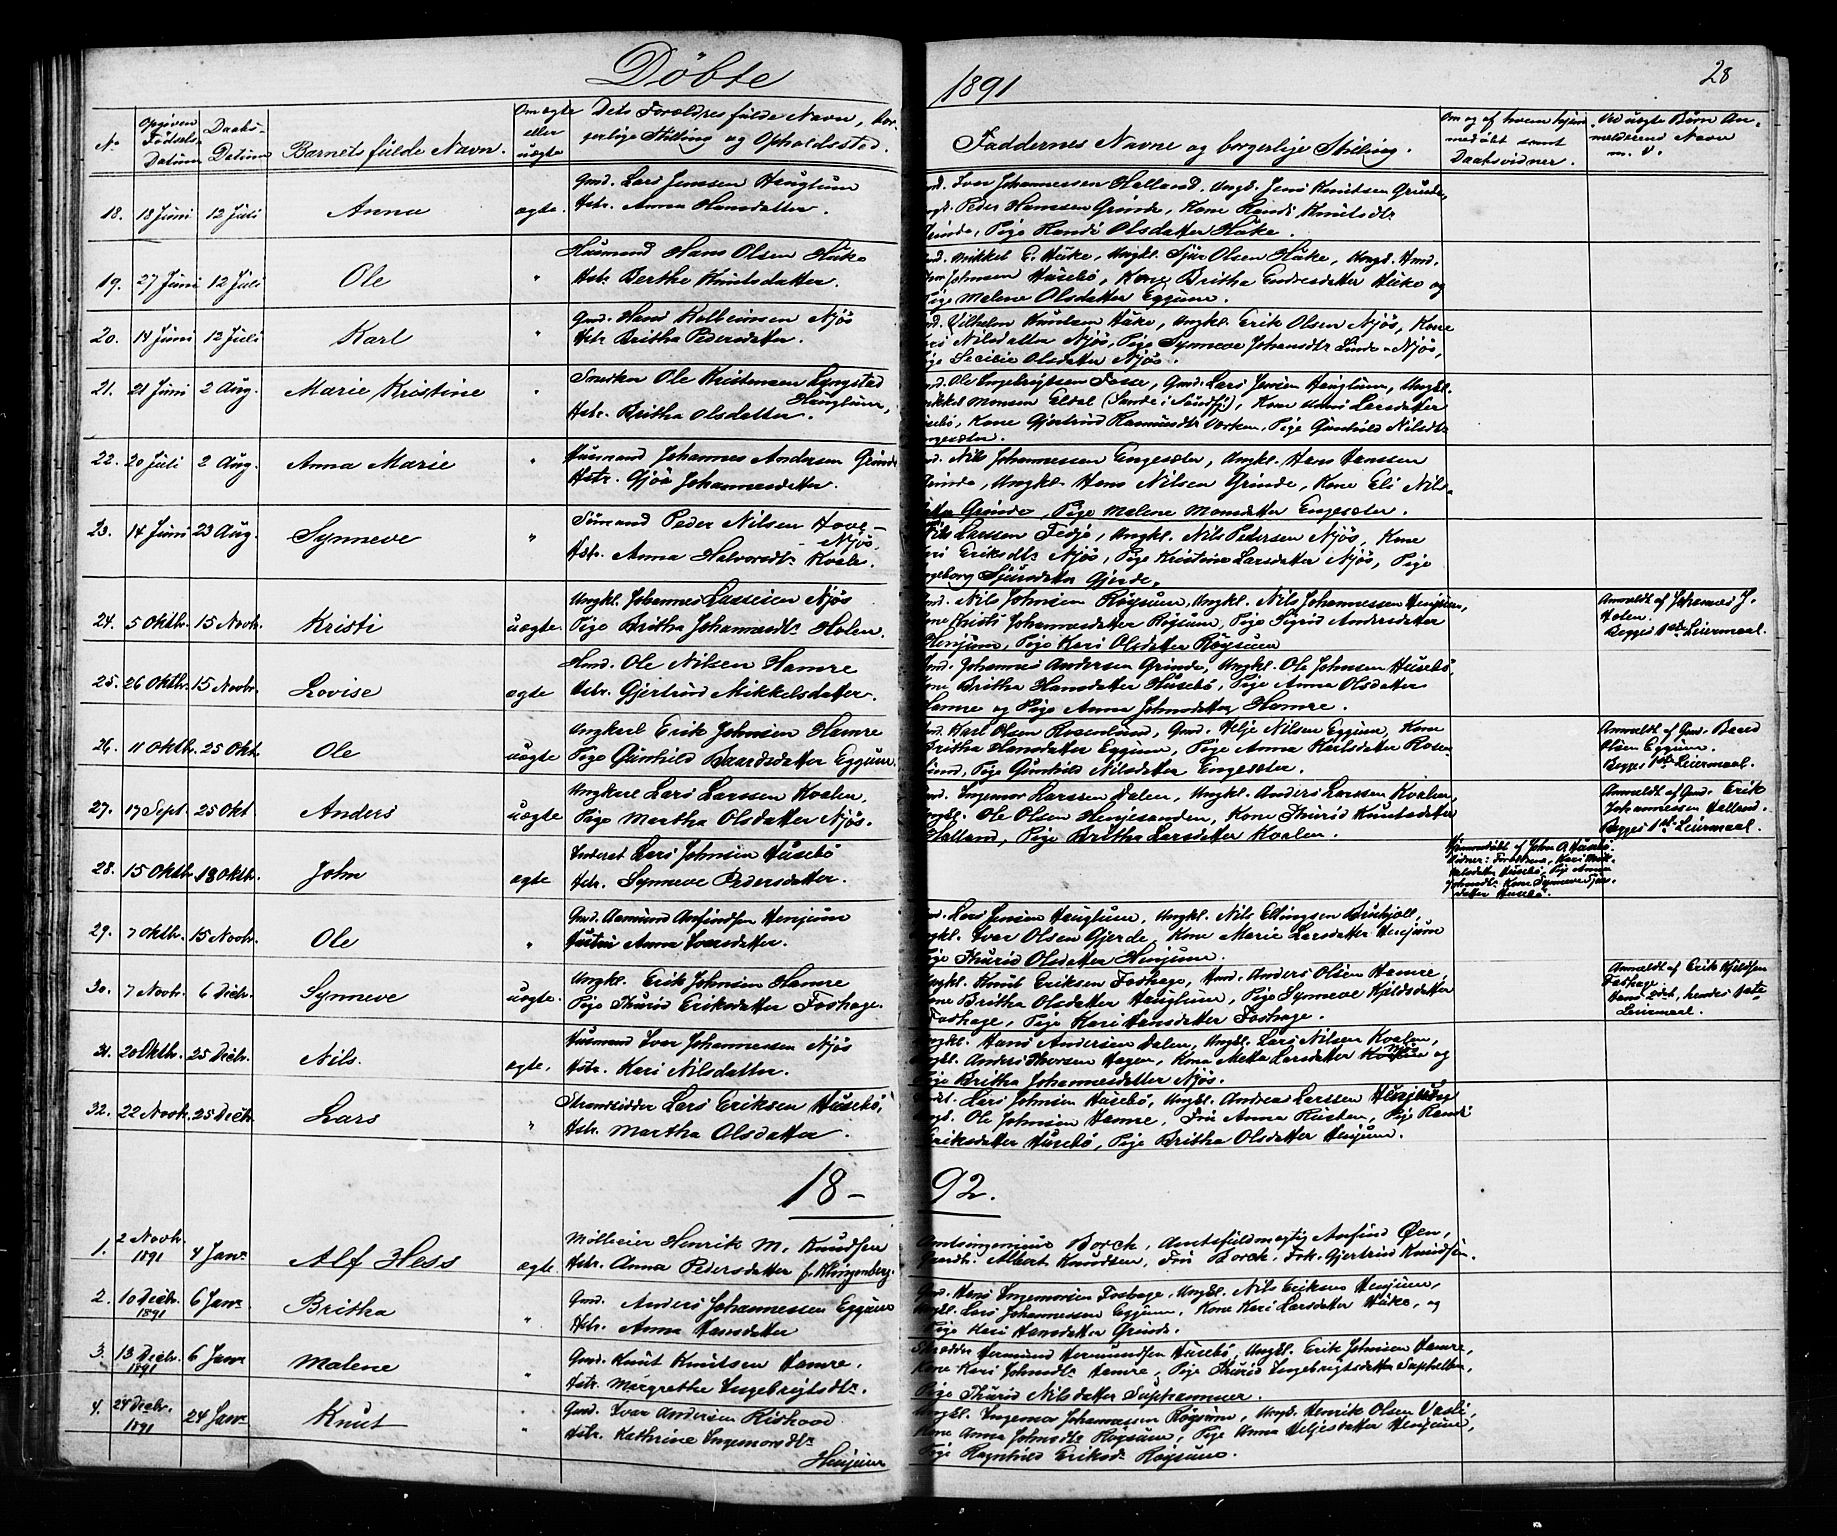 Døbte
1891
28
No
Opgiven Fødsels- Datum
Daabs- Datum
Barnets fulde Navn.
Om ægte eller uægte
Dets Forældres fulde Navn, bor-
gerlige Stilling og Opholdssted.
Faddernes Navne og borgerlige Stilling.
Om og af hvem hjem
medøbt samt
Daabsvidner.
Ved uægte Børn An-
melderens Navn
m. v.
18. 18 Juni 12 Juli Anna ægte. Gmd. Lars Jensen Henglum
Hstr. Anna Hansdatter.
Ivar Johannessen Halland, Ungk. Jens Knutsen Grinde,
Peder Hansen Grinde, Kone Randi Knutsdtr
Grinde, Pige Randi Olsdatter Hake.
19. 27 Juni 12 Juli Ole " Husmand Hans Olsen Hake
Hstr. Berthe Knutsdatter.
Mikkel E. Hake, Ungkl. Sjur Olsen Hake,
Johnsen Husebø, Kone Britha Endresdatter Hake og
Pige Malene Olsdatter Eggum.
20. 14 Juni 12 Juli Karl " Gmd. Hans Kolbeinsen Njøs
Hstr. Britha Pedersdatter.
Vilhelm Knutsen Hake, Ungkl. Erik Olsen Njøs, Kone
Nilsdatter Njøs, Pige Synneve Johansdtr Linde-Njøs,
Pige Secilie Olsdatter Njøs.
21. 21 Juni 2 Aug. Marie Kristine " Snedker Ole Kristensen Lyngstad
Henglum,
Hstr. Britha Olsdatter.
Ole Ingebrigtsen Fosse, Gmd. Lars Jensen Henglum, Ungkl.
Mikkel Monsen Eldal (Sande i Søndfj), Kone Larsdatter
Husebø, Kone Gjertrud Rasmusdtr Pige Gunhild Nilsdtr
Engesæter.
22. 20 Juli 2 Aug. Anna Marie " Husmand Johannes Andersen Grinde
Hstr. Gjøa Johannesdatter.
Nils Johannessen Engesæter, Ungkl. Hans Hanssen
Grinde, Ungkl. Hans Nilsen Grinde, Kone Eli Nils-
datter Grinde, Pige Malene Monsdatter Engesæter.
23. 14 Juni 23 Aug. Synneve " Peder Nilsen Hove-
Njøs.
Hstr. Anna Halvorsdtr Kvale.
Nils Larssen Fedje, Ungkl. Nils Pedersen Njøs, Kone
Kari Eriksdtr Njøs, Pige Kristine Larsdatter Njøs, Pige
Ingeborg Sjursdatter Gjerde.
24. 5 Oktbr. 15 Novbr. Kristi uægte. Ungkl. Johannes Lasseson Njøs
Pige Britha Johannesdtr Holen.
Nils Johnsen Røysum, Ungkl. Nils Johannessen Henjum,
Kone Kristi Johannesdatter Røysum, Pige Sigrid Andersdatter
Henjum, Pige Kari Olsdatter Røysum
Anmeldt af Johannes J.
Holen.
Begges 1ste Leiermaal.
25. 26 Oktbr. 15 Novbr. Lovise ægte Hmd. Ole Nilsen Hamre
Hstr. Gjertrud Mikkelsdatter.
Johannes Andersen Grinde, Ungkl. Ole Johnsen Husebø,
Kone Britha Hansdatter Husebø, Pige Anna Olsdatter
Hamre og Pige Anna Johnsdatter Hamre.
26. 11 Oktbr. 25 Okt. Ole uægte Ungkarl Erik Johnsen Hamre
Pige Gunhild Baardsdatter Eggum.
Karl Olsen Rosenlund, Gmd. Helje Nilsen Eggum, Kone
Britha Hansdatter Eggum, Pige Anna Karlsdatter Rosen
lund, Pige Gunhild Nilsdatter Engesæter.
Anmeldt af Gmd. Baard
Olsen Eggum.
Begges 1ste Leiermaal.
27. 17 Sept. 25 Okt Anders uægte Ungkarl Lars Larssen Kvalen,
Pige Martha Olsdatter Njøs.
Ingemor Larssen Dalen, Ungkl. Anders Larssen Kvalen,
Ungkl. Ole Olsen Hengesanden, Kone Thurid Knutsdatter
Halland, Pige Britha Larsdatter Kvalen.
Anmeldt af Gmd. Erik
Johannessen Halland.
Begges 1ste Leiermaal.
28. 15 Oktbr. 18 Oktbr. John ægte Inderst Lars Johnsen Husebø
Hstr. Synneve Pedersdatter.
Hjemmedøbt af John A Husebø.
Vidner: Forældrene, Kari Mik-
kelsdatter Husebø, Pige Anna
Johnsdtr Kone Synneve Sjurs-
datter Husebø.
29. 7 Oktbr. 15 Novbr. Ole " Gmd. Aamund Anfindsen Henjum
Hustru Anna Ivarsdatter.
Lars Jensen Henglum, Ungkl. Nils Ellingsen
Ungkl. Ivar Olsen Gjerde, Kone Marie Larsdatter Henjum
Pige Thurid Olsdatter Henjum.
30. 7 Novbr. 6 Decbr. Synneve uægte Ungkl. Erik Johnsen Hamre
Pige Thurid Eriksdatter Foshage.
Ungkl. Knut Eriksen Foshage, Hmd. Anders Olsen Hamre,
Kone Britha Olsdatter Henglum, Pige Synneve Kjeldsdatter
Foshage, Pige Kari Hansdatter Foshage.
Anmeldt af Erik Kjeldsen
Foshage.
Hans 2det, hendes 1ste
Leiermaal.
31. 20 Oktbr. 25 Decbr. Nils. ægte. Husmand Ivar Johannessen Njøs
Hstr. Kari Nilsdatter.
Ungkl. Hans Andersen Dalen, Ungkl. Lars Nilsen Kvalen,
Ungkl. Anders Thorsen Hagen, Kone Metta Larsdatter Njøs og
Pige Britha Johannesdatter Njøs.
32. 22 Novbr. 25 Decbr. Lars " Strandsidder Lars Eriksen Husebø,
Hstr. Martha Olsdatter.
Lars Johnsen Husebø, Ungkl. Andreas Larssen
Ungkl. Ole Johnsen Hamre, Fru Anna Rusten, Pige Randi
Eriksdatter Husebø, Pige Britha Olsdatter Henjum.
18-92.
1. 2 Novbr. 1891 4 Janr Alf Hess ægte Møllieier Henrik M. Knudsen
Hstr. Anna Pedersdatter f. Klingenberg.
Amtsingeniør Borch, Amtsfuldmægtig Anfind Øen,
Gaardbr. Albert Knudsen, Fru Borch, Frk. Gjertrud Knudsen.
2. 10 Decbr. 1891 6 Janr Britha " Gmd. Anders Johannessen Eggum
Hstr. Anna Hansdatter
Gmd. Hans Ingemorsen Foshage, Ungkl. Nils Eriksen Henjum,
Ungkl. Lars Johannessen Eggum, Kone Kari Larsdatter Hake, og
Pige Kari Hansdatter Grinde.
3. 13 Decbr. 1891 6 Janr Malene " Gmd. Knut Knutsen Hamre.
Hstr. Margrethe Ingebrigtsdtr.
Skrædder Hermund Hermundsen Husebø, Ungkl. Erik Johnsen Hamre,
Kone Kari Johnsdtr Hamre, Pige Thurid Ingebrigtsdatter
Pige Thurid Nilsdatter Suphammer.
4. 24 Decbr. 1891 24 Janr Knut " Gmd. Ivar Andersen Rishovd
Hstr. Kathrine Ingemorsdtr
Henjum
Ungkl. Ingemor Johannessen Røysum, Ungk. Henrik Olsen
Kone Anna Johnsdtr Røysum, Pige Anna Heljesdatter Henjum,
Pige Ragnhild Eriksdr Røysum.